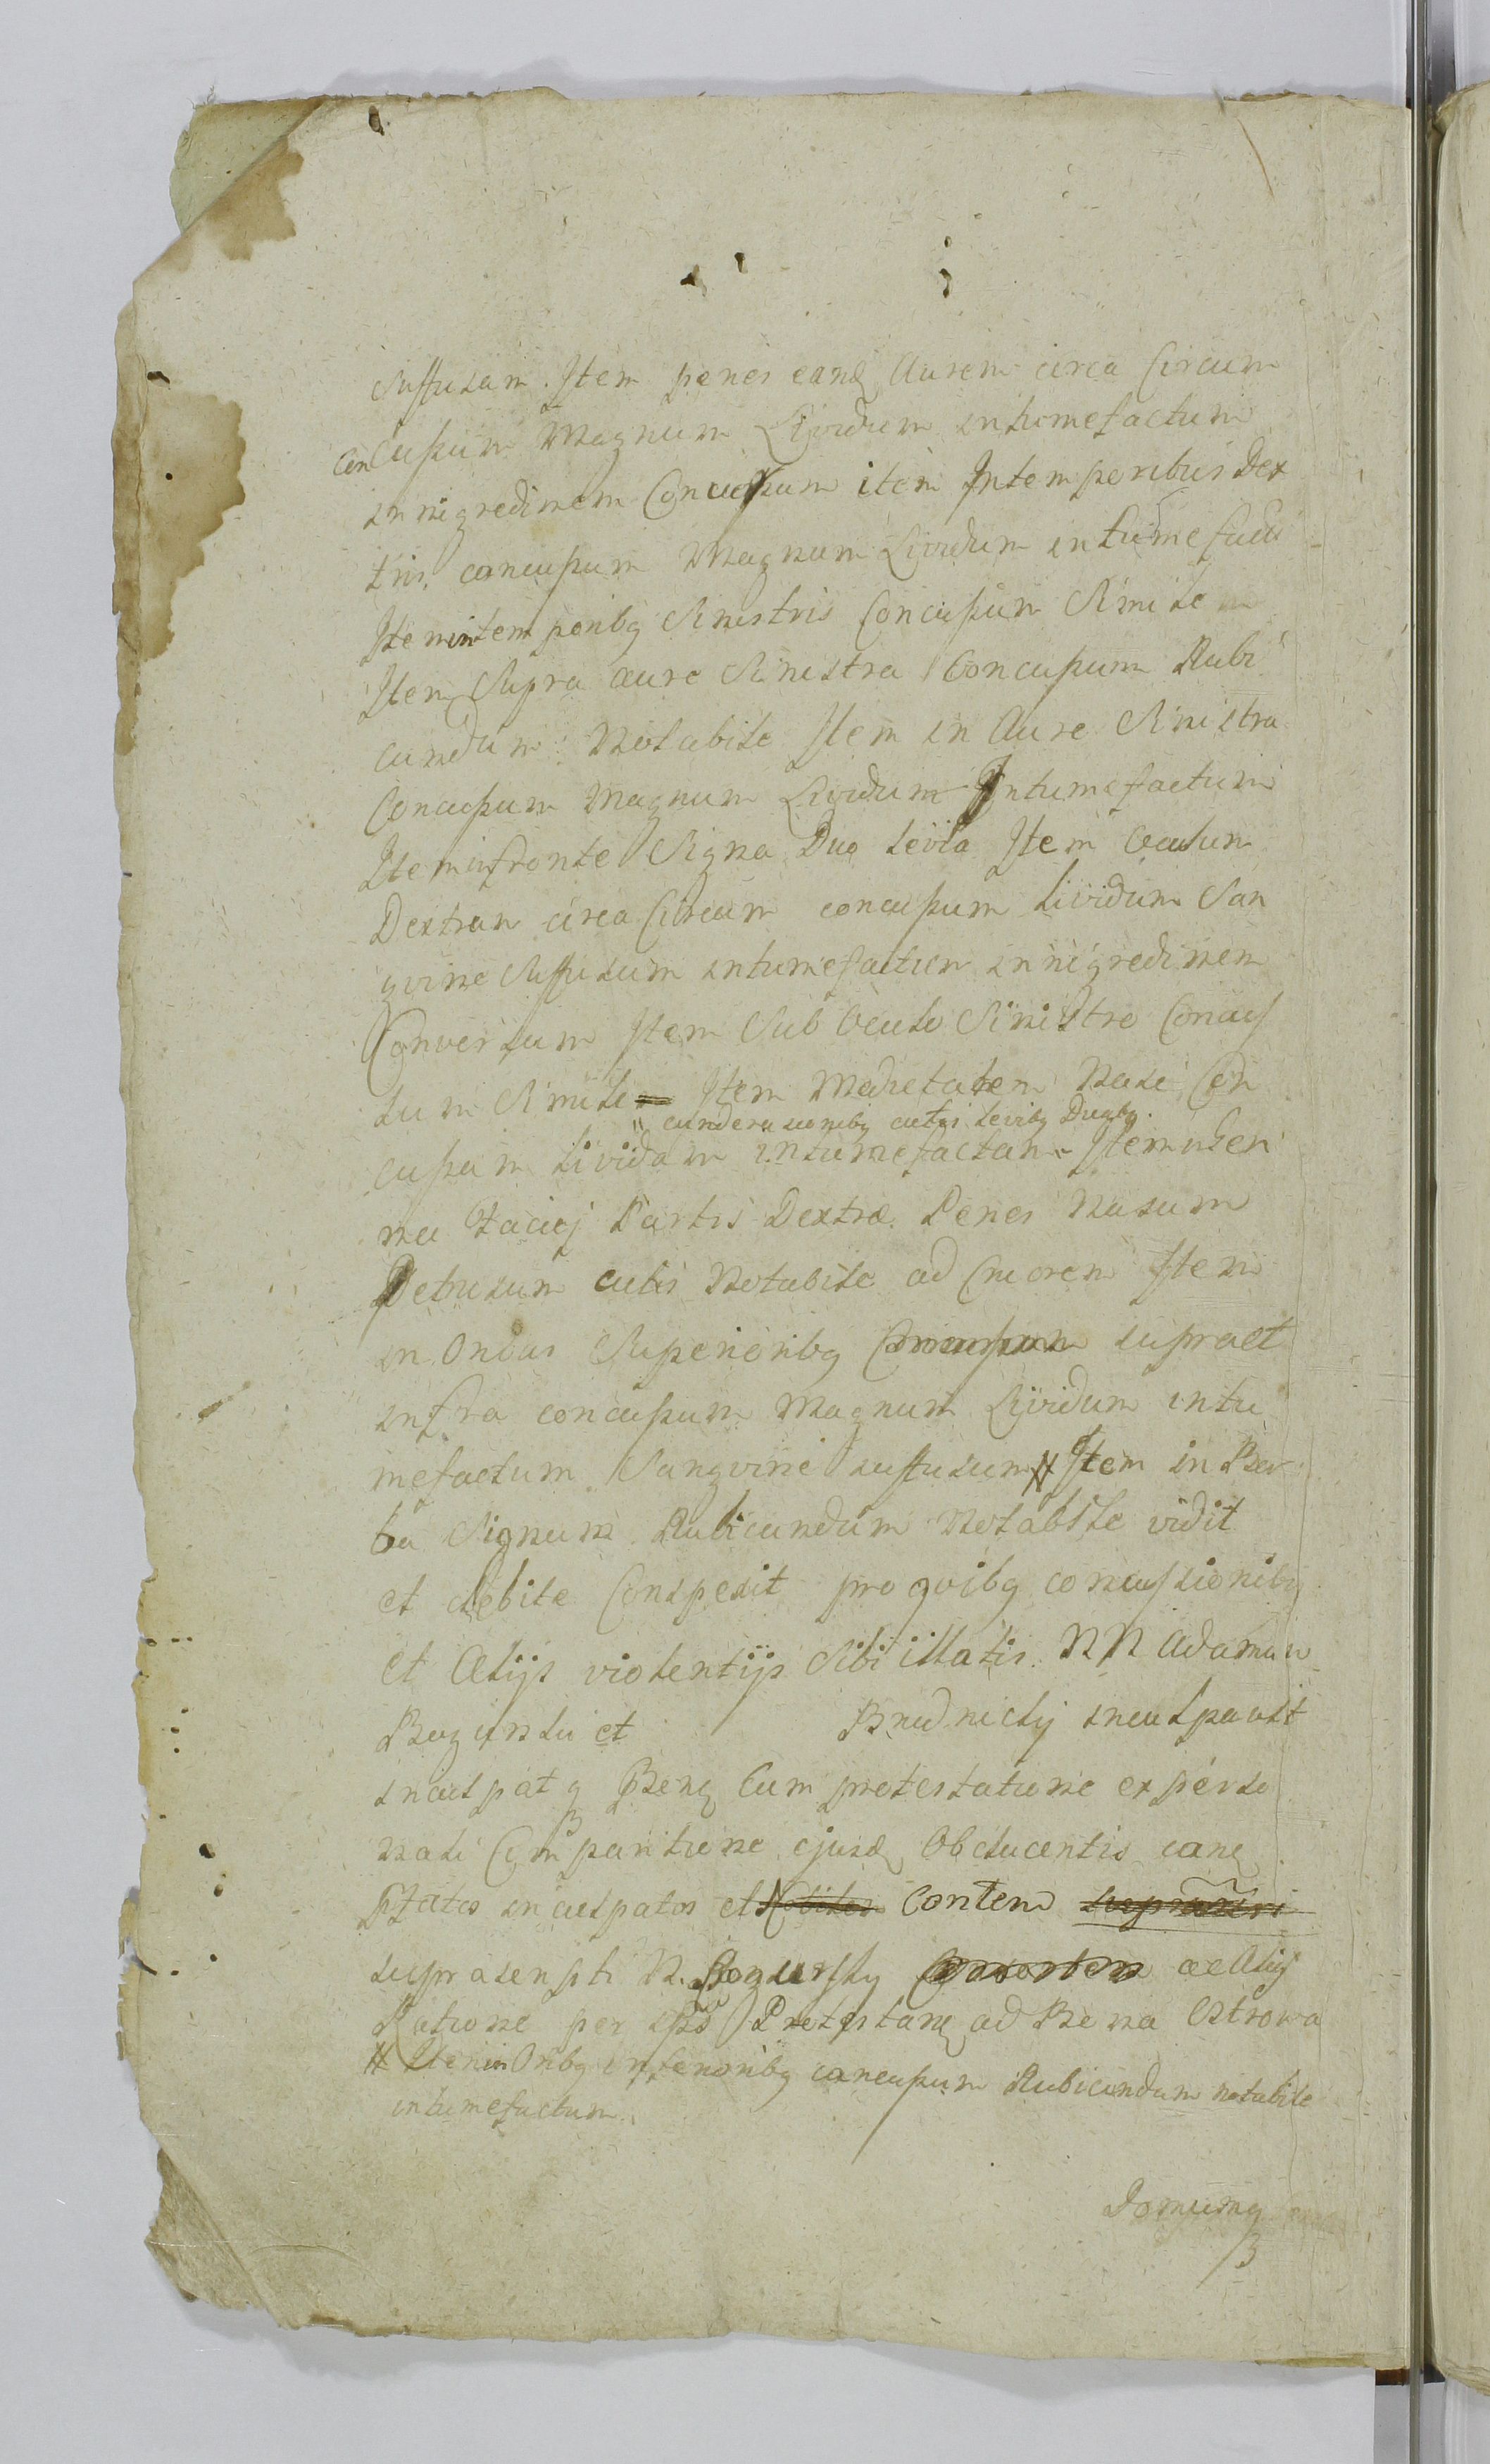 suffusam. Item penes eand Aurem circa Circum
Concussum Magnum Lividum intumefactum
in nigredinem Concussum item Intemporibus Dex
tris concussum Magnum Lividum intumefactu
Item intemporibq Sinistris Concussum Simile
Item Supra aure Sinistra Concussum Rubi
cundum Notabile Item in Aure Sinistra
Concussum Magnum Lividum Intumefactum
Item infronte Signa Duo levia Item Oculum
Dextrum circa Circum concussum lividum San
gvine Suffusum intumefactum in nigredinem
Conversum Item Sub Oculo Sinistro Concus
sum Simile Item Medietatem Nasi Con
cutis levibq Duabq.
cussam lividam intumefactam Item in
Faciej Partis Dextræ Penes Nasum
Detrusum cutis Notabile ad Cruorem Item
in Superioribq supra et
infra concussum Magnum Lividum intu
mefactum Sangvine suffusum # Item in Bar
ba Signum Rubicundum Notabile vidit
et debite Conspexit pro qvibq concussionibq
et Alijs violentijs Sibi illatis NN Adamum
et Brudnicky inculpavit
inculpatq Benq Cum protestatione experso
nali Comparitione ejusd Obducentis eand
inculpatos et Contem
suprascripti N. Bogursky ac Alij
Ratione per ipsos Protestand ad Bona Ostrowa
# Item in Oribq inferioribq concussum Rubicundum notabile
intumefactum
Domumq